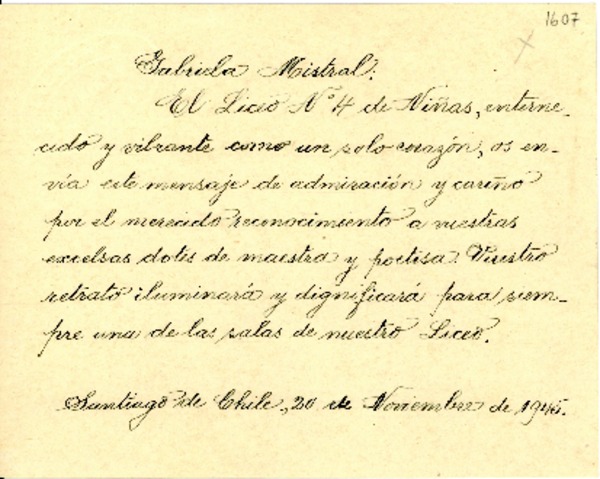 1607
Gabriela Mistral:
El Liceo Nº 4 de Niñas, enterne-
cido y vibrante como un solo corazón, os en-
vía este mensaje de admiración y cariño
por el merecido reconocimiento a vuestras
excelsas dotes de maestra y poetisa. Vuestro
retrato iluminará y dignificará para siem-
pre una de las salas de nuestro Liceo.
Santiago de Chile, 20 de Noviembre de 1945.